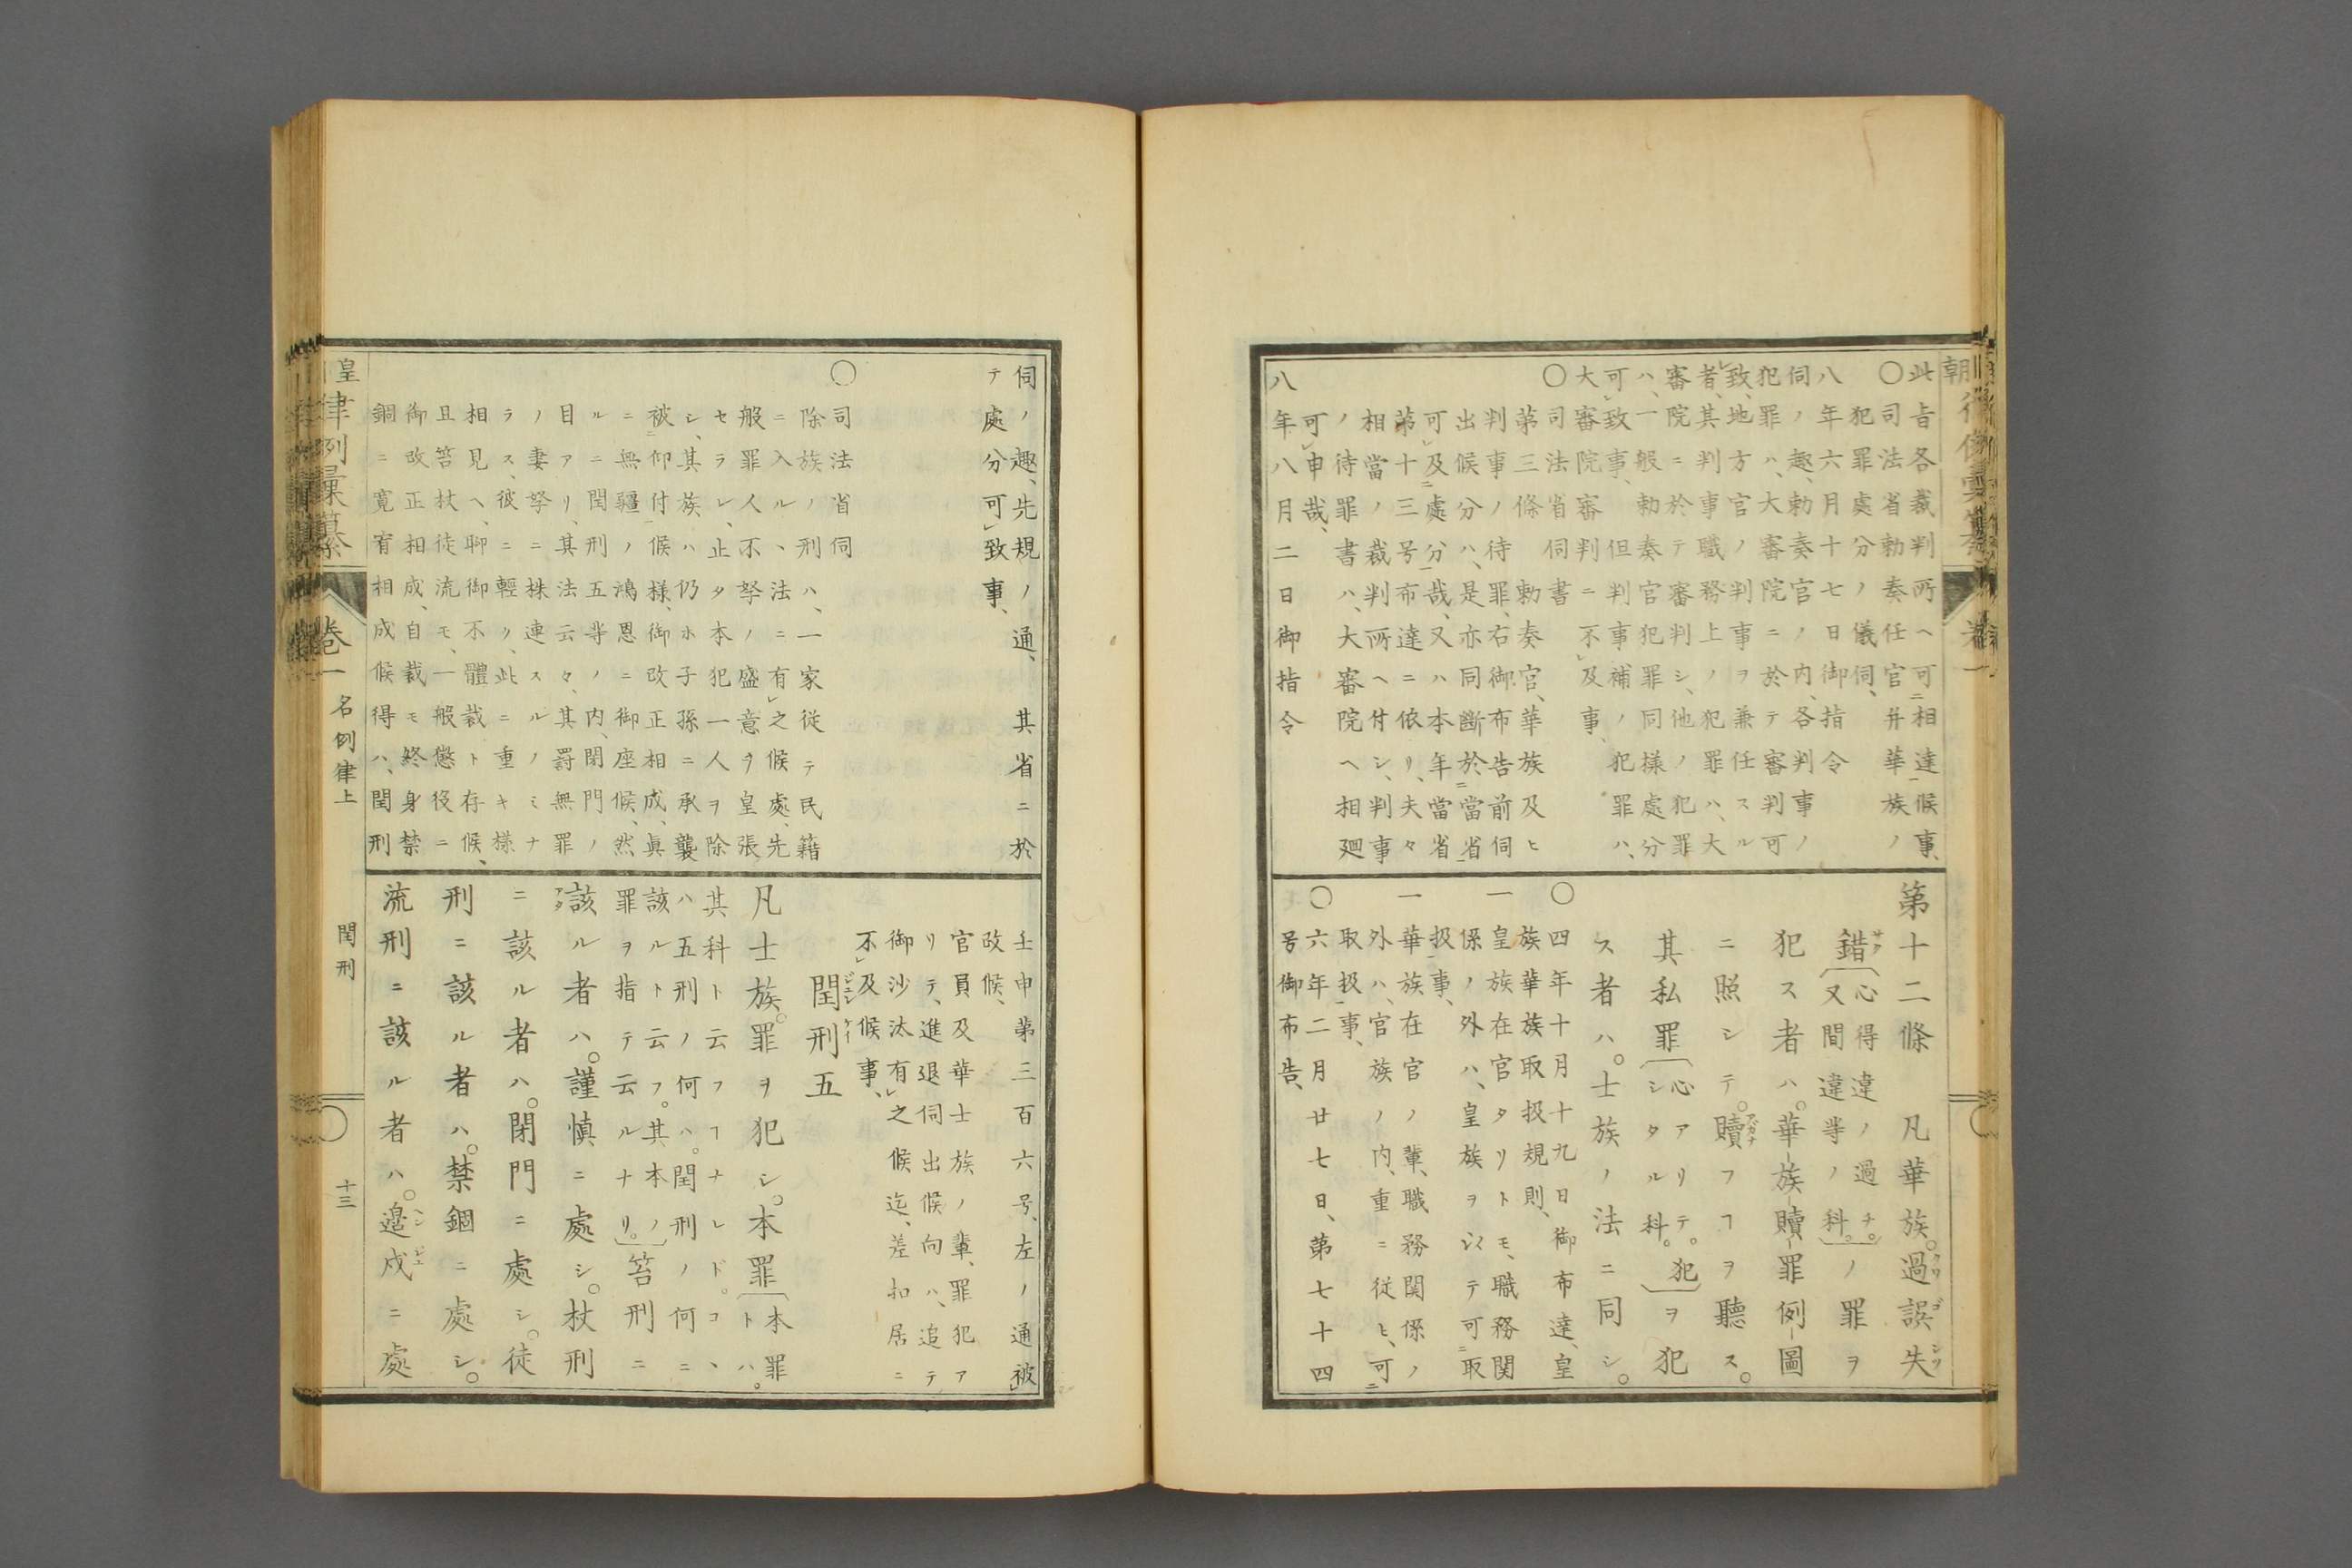 此旨各裁判所ヘ可相達候事、
〇司法省勅奏任官幷華族ノ
犯罪處分ノ儀伺、
八年六月十七日御指令
伺ノ趣、勅奏官ノ内、各判事ノ
犯罪ハ、大審院ニ於テ審判可
致、地方官ノ判事ヲ兼任スル
者、其判事職務上ノ犯罪ハ、大
審院ニ於テ審判シ、他ノ犯罪
ハ、一般勅奏官犯罪同様處分
可致事、但判事補ノ犯罪ハ、
大審院審判ニ不及事、
〇司法省伺書
第三條 勅奏官、華族及ヒ
判事ノ待罪、右御布告前伺
出候分ハ、是亦同斷於當省
可及處分哉、又ハ本年當省
第十三号布達ニ依リ、夫々
相當ノ裁判所ヘ付シ、判事
ノ待罪書ハ、大審院ヘ相廻
可申哉、
八年八月二日御指令
第十二條 凡華族。過誤失
錯心得違ノ過チ。
又間違等ノ科。ノ罪ヲ
犯ス者ハ。華族贖罪例圖
ニ照シテ。贖フヿヲ聽ス。
其私罪心アリテ。犯
シタル科。ヲ犯
ス者ハ。士族ノ法ニ同シ。
〇四年十月十九日御布達、皇
族華族取扱規則、
一皇族在官タリトモ、職務関
係ノ外ハ、皇族ヲ以テ可取
扱事、
一華族在官ノ輩、職務関係ノ
外ハ、官族ノ内、重ニ従ヒ、可
取扱事、
〇六年二月廿七日、第七十四
号御布告、
伺ノ趣、先規ノ通、其省ニ於
テ處分可致事、
〇司法省伺
除族ノ刑ハ、一家従テ民籍
ニ入ルノ法ニ有之候處、先
般罪人不孥ノ盛意ヲ皇張
セラレ、止タ本犯一人ヲ除
シ、其族ハ仍ホ子孫ニ承襲
被仰付候様、御改正相成、眞
ニ無疆ノ鴻恩ニ御座候、然
ルニ閏刑五等ノ内、閉門ノ
目アリ、其法云々、其罸無罪
ノ妻孥ニ株連スルノミナ
ラス、彼ニ輕ク、此ニ重キ様
相見ヘ、聊御不體裁ト存候、
且笞杖徒流モ、一般懲役ニ
御改正相成、自裁モ終身禁
錮ニ寛宥相成候得ハ、閏刑
壬申第三百六号、左ノ通被
改候、
官員及華士族ノ輩、罪犯ア
リテ、進退伺出候向ハ、追テ
御沙汰有之候迄、差扣居ニ
不及候事、
閏刑五
凡士族。罪ヲ犯シ。本罪本罪
トハ。
其科ト云フヿナレド。コヽ
ハ五刑ノ何ハ。閏刑ノ何ニ
該ルト云フ。其本ノ
罪ヲ指テ云ルナリ。笞刑ニ
該ル者ハ。謹慎ニ處シ。杖刑
ニ該ル者ハ。閉門ニ處シ。徒
刑ニ該ル者ハ。禁錮ニ處シ。
流刑ニ該ル者ハ。邉戍ニ處
皇律例彙纂 巻一 名例律上 閏刑 十三